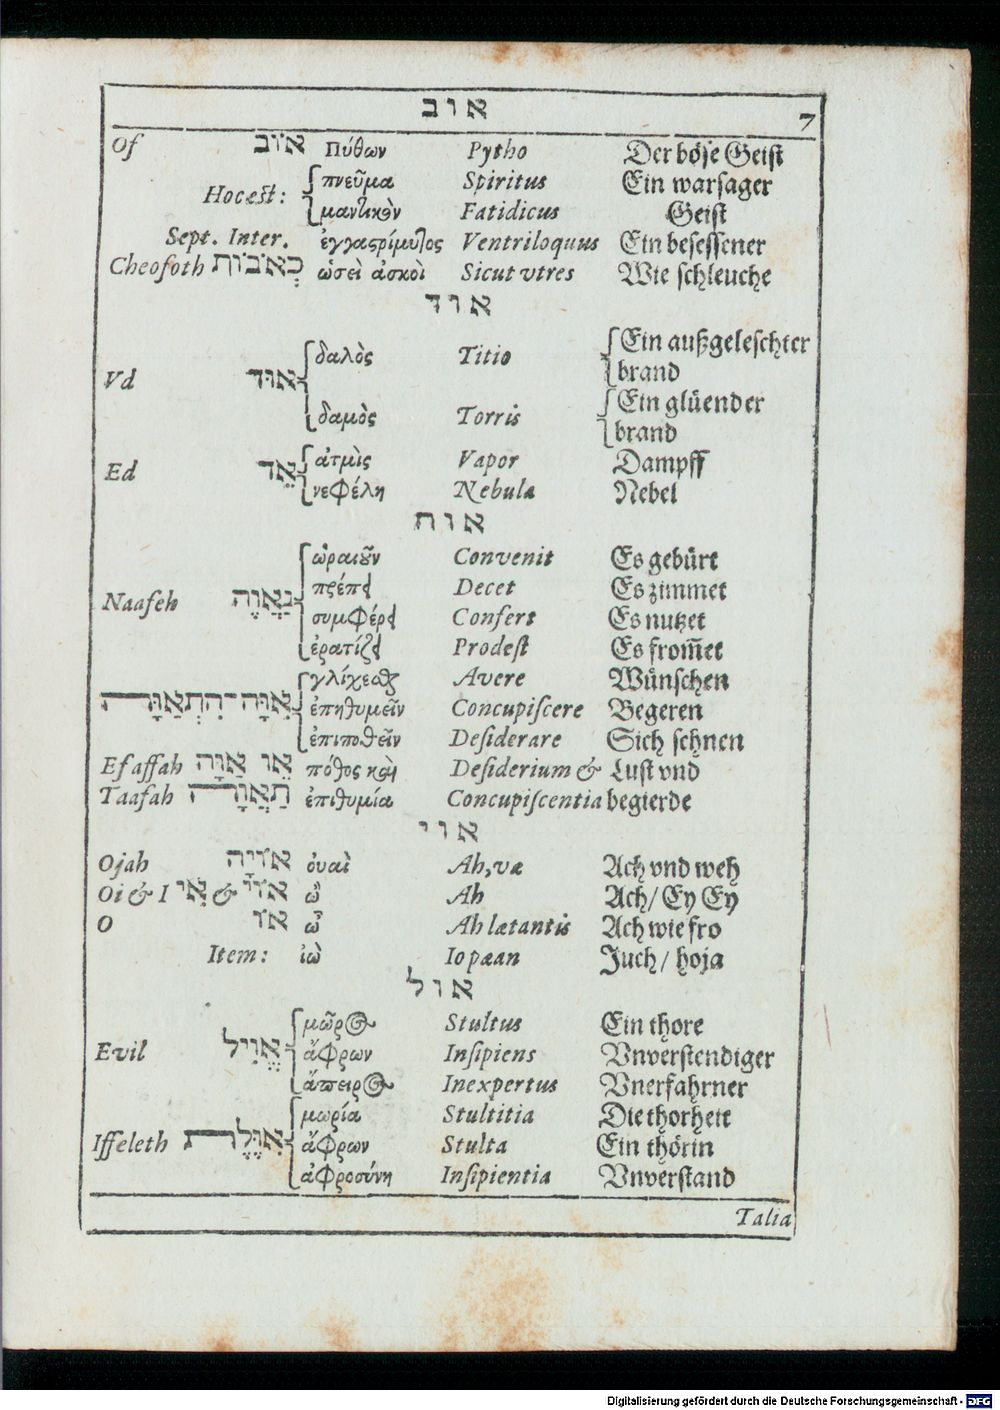 אוב
7
Of אוֹב Πύθων Pytho Der böse Geist
Hoc est: πνεῦμα Spiritus Ein warsager
μαντικὸν Fatidicus Geist
Sept. Inter. ἐγγαστρίμυθος Ventriloquus Ein besessener
Cheofoth כְּאֹבוֹת ὡσεὶ ἀσκοὶ Sicut vtres Wie schleuche
אוד
Vd אוּד δαλὸς Titio Ein außgeleschter brand
δαμὸς Torris Ein glüender brand
Ed אֵד ἀτμὶς Vapor Dampff
νεφέλη Nebula Nebel
אוה
ὡραιοῦν Convenit Es gebürt
πρέπει Decet Es zimmet
Naafeh נָאֲוֶה συμφέρει Confert Es nutzet
ἐρατίζει Prodest Es from̃et
γλίχεσθαι Avere Wünschen
אִוָּה־הִתְאַוָּה ἐπηθυμεῖν Concupiscere Begeren
ἐπιποθεῖν Desiderare Sich sehnen
Ef affah אֵו אַוָּה πόθος καὶ Desiderium & Lust vnd
Taafah תַּאֲוָה ἐπιθυμία Concupiscentia begierde
אוי
Ojah אוֹיָה ὀυαὶ Ah, væ Ach vnd weh
Oi & I אוֹי & אִי ὢ Ah Ach / Ey Ey
O אוֹ ὦ Ah lætantis Ach wie fro
Item: ἰὼ Io pæan Juch / hoja
אול
μῶρος Stultus Ein thore
Evil אֱוִיל ἄφρων Insipiens Vnverstendiger
ἄπειρος Inexpertus Vnerfahrner
μωρία Stultitia Die thorheit
Iffeleth אִוֶּלֶת ἄφρων Stulta Ein thörin
ἀφροσύνη Insipientia Vnverstand
Talia
Digitalisierung gefördert durch die Deutsche Forschungsgemeinschaft - DFG